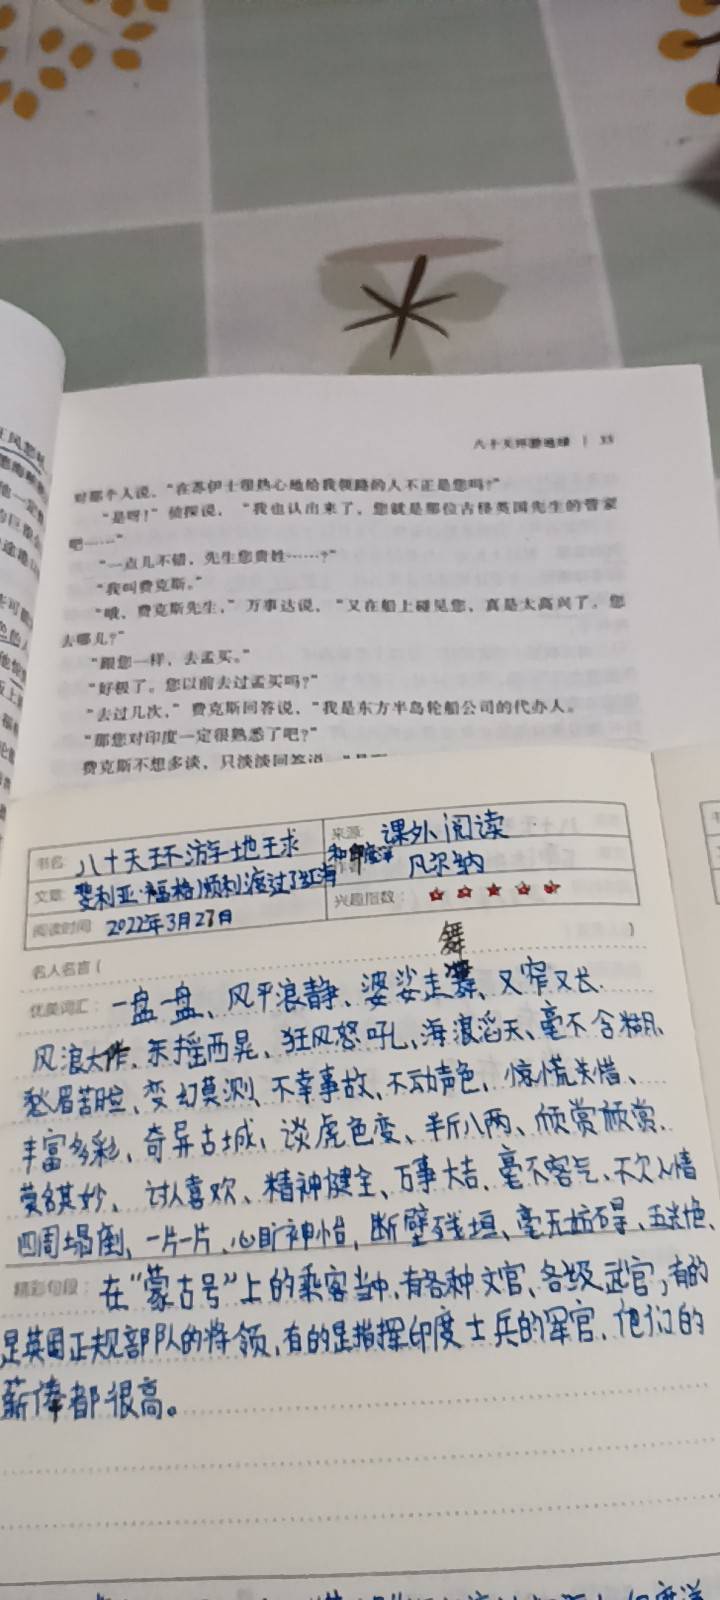 八十天环游地球 | 33
对那个人说，“在苏伊士很热心地给我领路的人不正是您吗？”
“是呀！”侦探说，“我也认出来了，您就是那位古怪英国先生的管家
吧……”
“一点儿不错，先生您贵姓……？”
“我叫费克斯。”
“哦，费克斯先生，”万事达说，“又在船上碰见您，真是太高兴了。您
去哪儿？”
“跟您一样，去孟买。”
“好极了。您以前去过孟买吗？”
“去过几次，”费克斯回答说，“我是东方半岛轮船公司的代办人。
“那您对印度一定很熟悉了吧？”
费克斯不想多谈，只淡淡回答说
书名 八十天环游地球
来源 课外阅读
文章 斐利亚·福格顺利渡过了红海和印度洋
凡尔纳
阅读时间 2022年3月27日
兴趣指数：★★★★★
名人名言（ ）
舞
优美词汇：一盘一盘、风平浪静、婆娑走舞、又窄又长、
风浪大作、东摇西晃、狂风怒吼、海浪滔天、毫不含糊、
愁眉苦脸、变幻莫测、不幸事故、不动声色、惊慌失措、
丰富多彩、奇异古城、谈虎色变、半斤八两、颀赏颀赏、
莫名其妙、讨人喜欢、精神健全、万事大吉、毫不客气、不欠人情
四周塌倒、一片一片、心旷神怡、断壁残垣、毫无妨碍、
精彩句段：在“蒙古号”上的乘客当中，有各种文官、各级武官，有的
是英国正规部队的将领，有的是指挥印度士兵的军官，他们的
薪俸都很高。